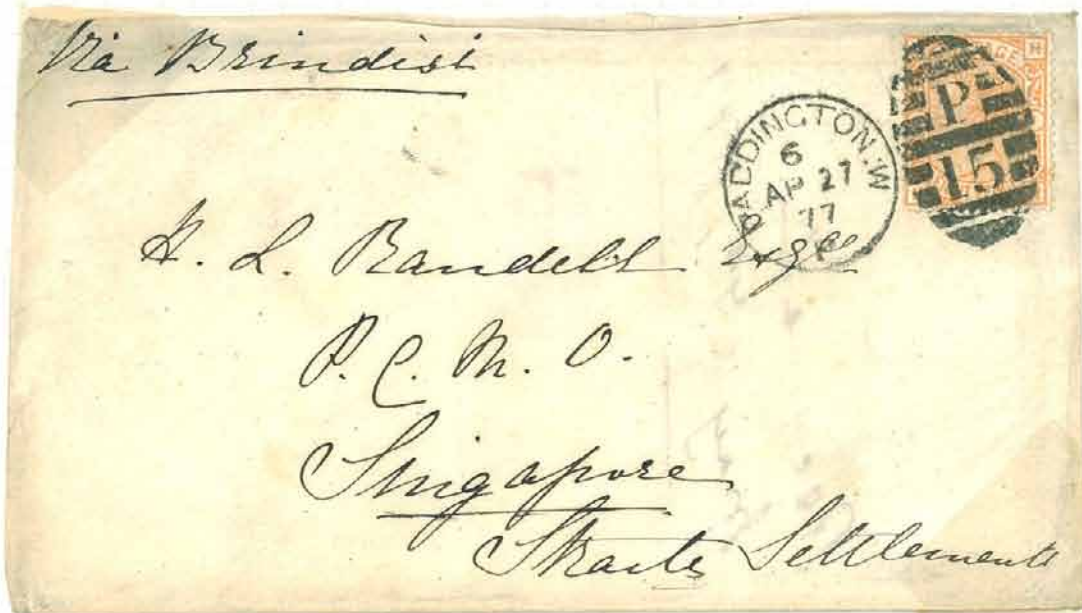 Via Brindisi
PADDINGTON.W
6
AP 27
77
P
15
H. L. Randell Esqre
P. C. M. O.
Singapore
Straits Settlements